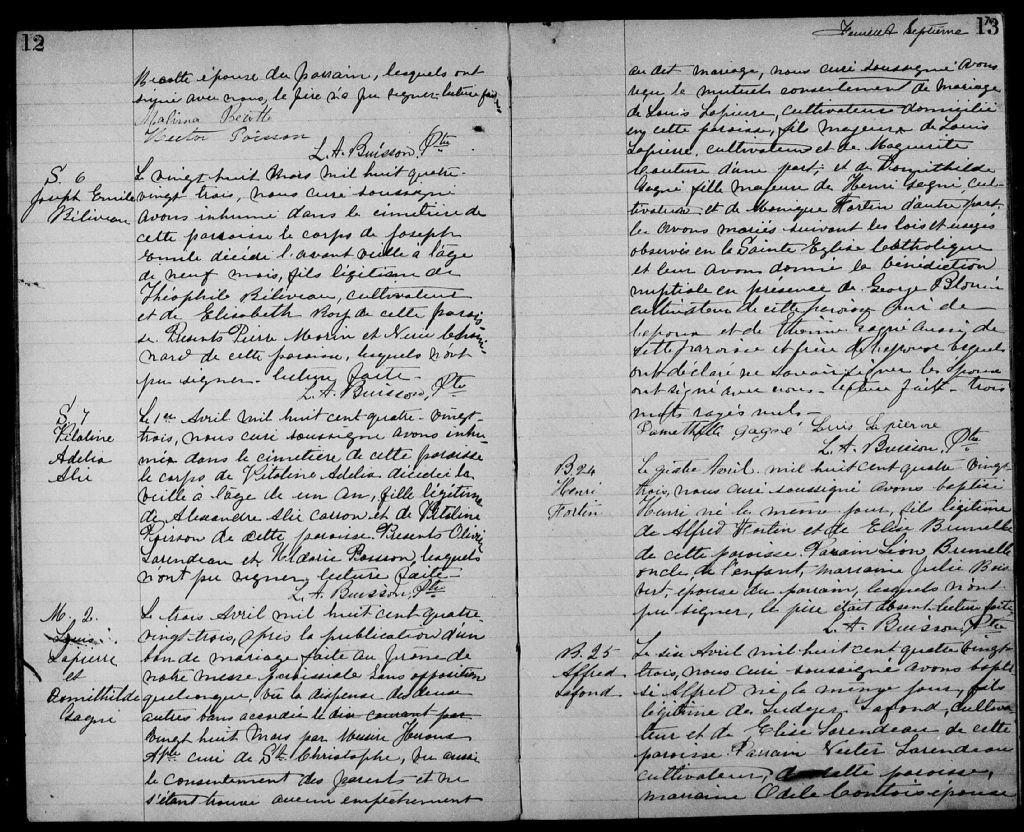 12
Ricotte épouse du parrain, lesquels ont
signé avec nous, le père n'a pu signer. lecture faite
Malvina Ricotte
Hector Poisson
L. A. Buisson, Ptre
S 6
Joseph Emile
Béliveau
Le vingt huit Mars mil huit cent quatre-
vingt trois, nous curé soussigné
avons inhumé dans le cimetière de
cette paroisse le corps de Joseph
Emile décédé l'avant veille à l'âge
de neuf mois, fils légitime de
Théophile Béliveau, cultivateur
et de Elisabeth Roy de cette parois-
se. Présents Pierre Morin et
nard de cette paroisse, lesquels n'ont
pu signer. lecture faite
L. A. Buisson, Ptre
S 7
Vitaline
Adélia
Alie
Le 1er Avril mil huit cent quatre-vingt-
trois, nous curé soussigné avons inhu-
mé dans le cimetière de cette paroisse
le corps de Vitaline Adélia décédée la
veille à l'âge de un an, fille légitime
de Alexandre Alie et de Vitaline
Poisson de cette paroisse. Présents
Larendeau et lesquels
n'ont pu signer, lecture faite
L. A. Buisson, Ptre
M. 2.
Louis
Lapierre
et
Domithilde
Gagné
Le trois Avril mil huit cent quatre-
vingt-trois, après la publication d'un
ban de mariage faite au prône de
notre messe paroissiale sans opposition
quelconque, vu la dispense des deux
autres bans accordée le dix courant par
vingt huit Mars par Messire
Ptre curé de St. Christophe, vu aussi
le consentement des parents et ne
s'étant trouvé aucun empêchement
Feuillet Septième 13
au dit mariage, nous curé soussigné avons
reçu le mutuel consentement de mariage
de Louis Lapierre, cultivateur domicilié
en cette paroisse, fils majeur de Louis
Lapierre, cultivateur et de Marguerite
Couture d'une part, et de Domithilde
Gagné fille majeure de Henri Gagné, cul-
tivateur et de Monique Fortin d'autre part
les avons mariés suivant les lois et usages
observés en la Sainte Eglise Catholique
et leur avons donné la bénédiction
nuptiale en présence de George Blouin
cultivateur de cette paroisse ami de
l'époux et de Etienne Gagné aussi de
cette paroisse et frère de l'épouse lesquels
ont déclaré ne savoir signer les époux
ont signé avec nous. lecture faite trois
mots rayés nuls
Gagné Louis Lapierre
L. A. Buisson, Ptre
B. 24
Henri
Fortin
Le quatre Avril mil huit cent quatre vingt
trois, nous curé soussigné avons baptisé
Henri né le même jour, fils légitime
de Alfred Fortin et de Elise Brunelle
de cette paroisse. Parrain Léon Brunelle
oncle de l'enfant, marraine Julie Bois
vert épouse du parrain, lesquels n'ont
pu signer, le père était absent. lecture faite
L. A. Buisson, Ptre
B. 25
Alfred
Lafond
Le six Avril mil huit cent quatre vingt-
trois, nous curé soussigné avons bapti-
sé Alfred né le même jour, fils
légitime de Ludger Lafond, cultiva-
teur et de Elise Larendeau de cette
paroisse Parrain Larendeau
cultivateur, de cette paroisse,
marraine Odile Contois épouse